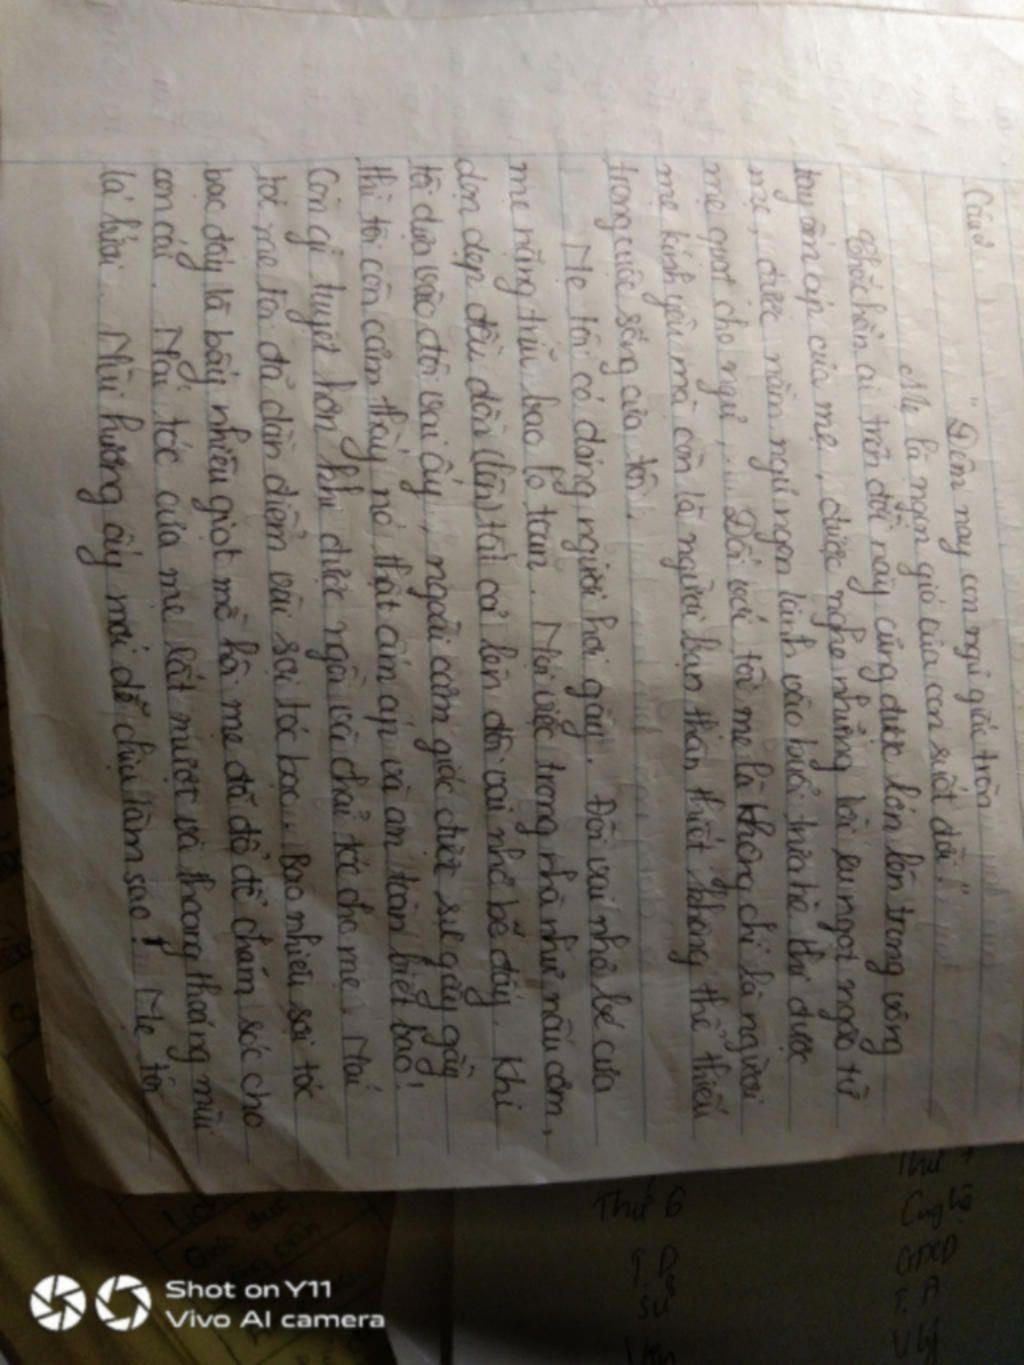 Câu 2.
"Đêm nay con ngủ giấc tròn
Mẹ là ngọn gió của con suốt đời."
Chắc hẳn ai trên đời này cũng được lớn lên trong vòng
tay ấm áp của mẹ, được nghe những lời ru ngọt ngào từ
mẹ, được nằm ngủ ngon lành vào buổi trưa hè thì được
mẹ quạt cho ngủ,... Đối với tôi mẹ là không chỉ là người
mẹ kính yêu mà còn là người bạn thân thiết không thể thiếu
trong cuộc sống của tôi.
Mẹ tôi có dáng người hơi gầy. Đôi vai nhỏ bé của
mẹ nặng trĩu bao lo toan. Mọi việc trong nhà như nấu cơm,
dọn dẹp đều dồn (lên) tất cả lên đôi vai nhỏ bé đấy. Khi
tôi dựa vào đôi vai ấy, ngoài cảm giác được sự gầy gầy
thì tôi còn cảm thấy nó thật ấm áp và an toàn biết bao!
Còn gì tuyệt hơn khi được ngồi và chải tóc cho mẹ. Mái
tóc mẹ tôi đã dần điểm vài sợi tóc bạc. Bao nhiêu sợi tóc
bạc đấy là bấy nhiêu giọt mồ hôi mẹ đã đổ để chăm sóc cho
con cái. Mái tóc của mẹ lất mượt và thoang thoảng mùi
lá bưởi. Mùi hương ấy mới dễ chịu làm sao! Mẹ tôi
Thứ 6
T. D
Sử
Văn
Thứ 7
GDCD
T. A
V lý